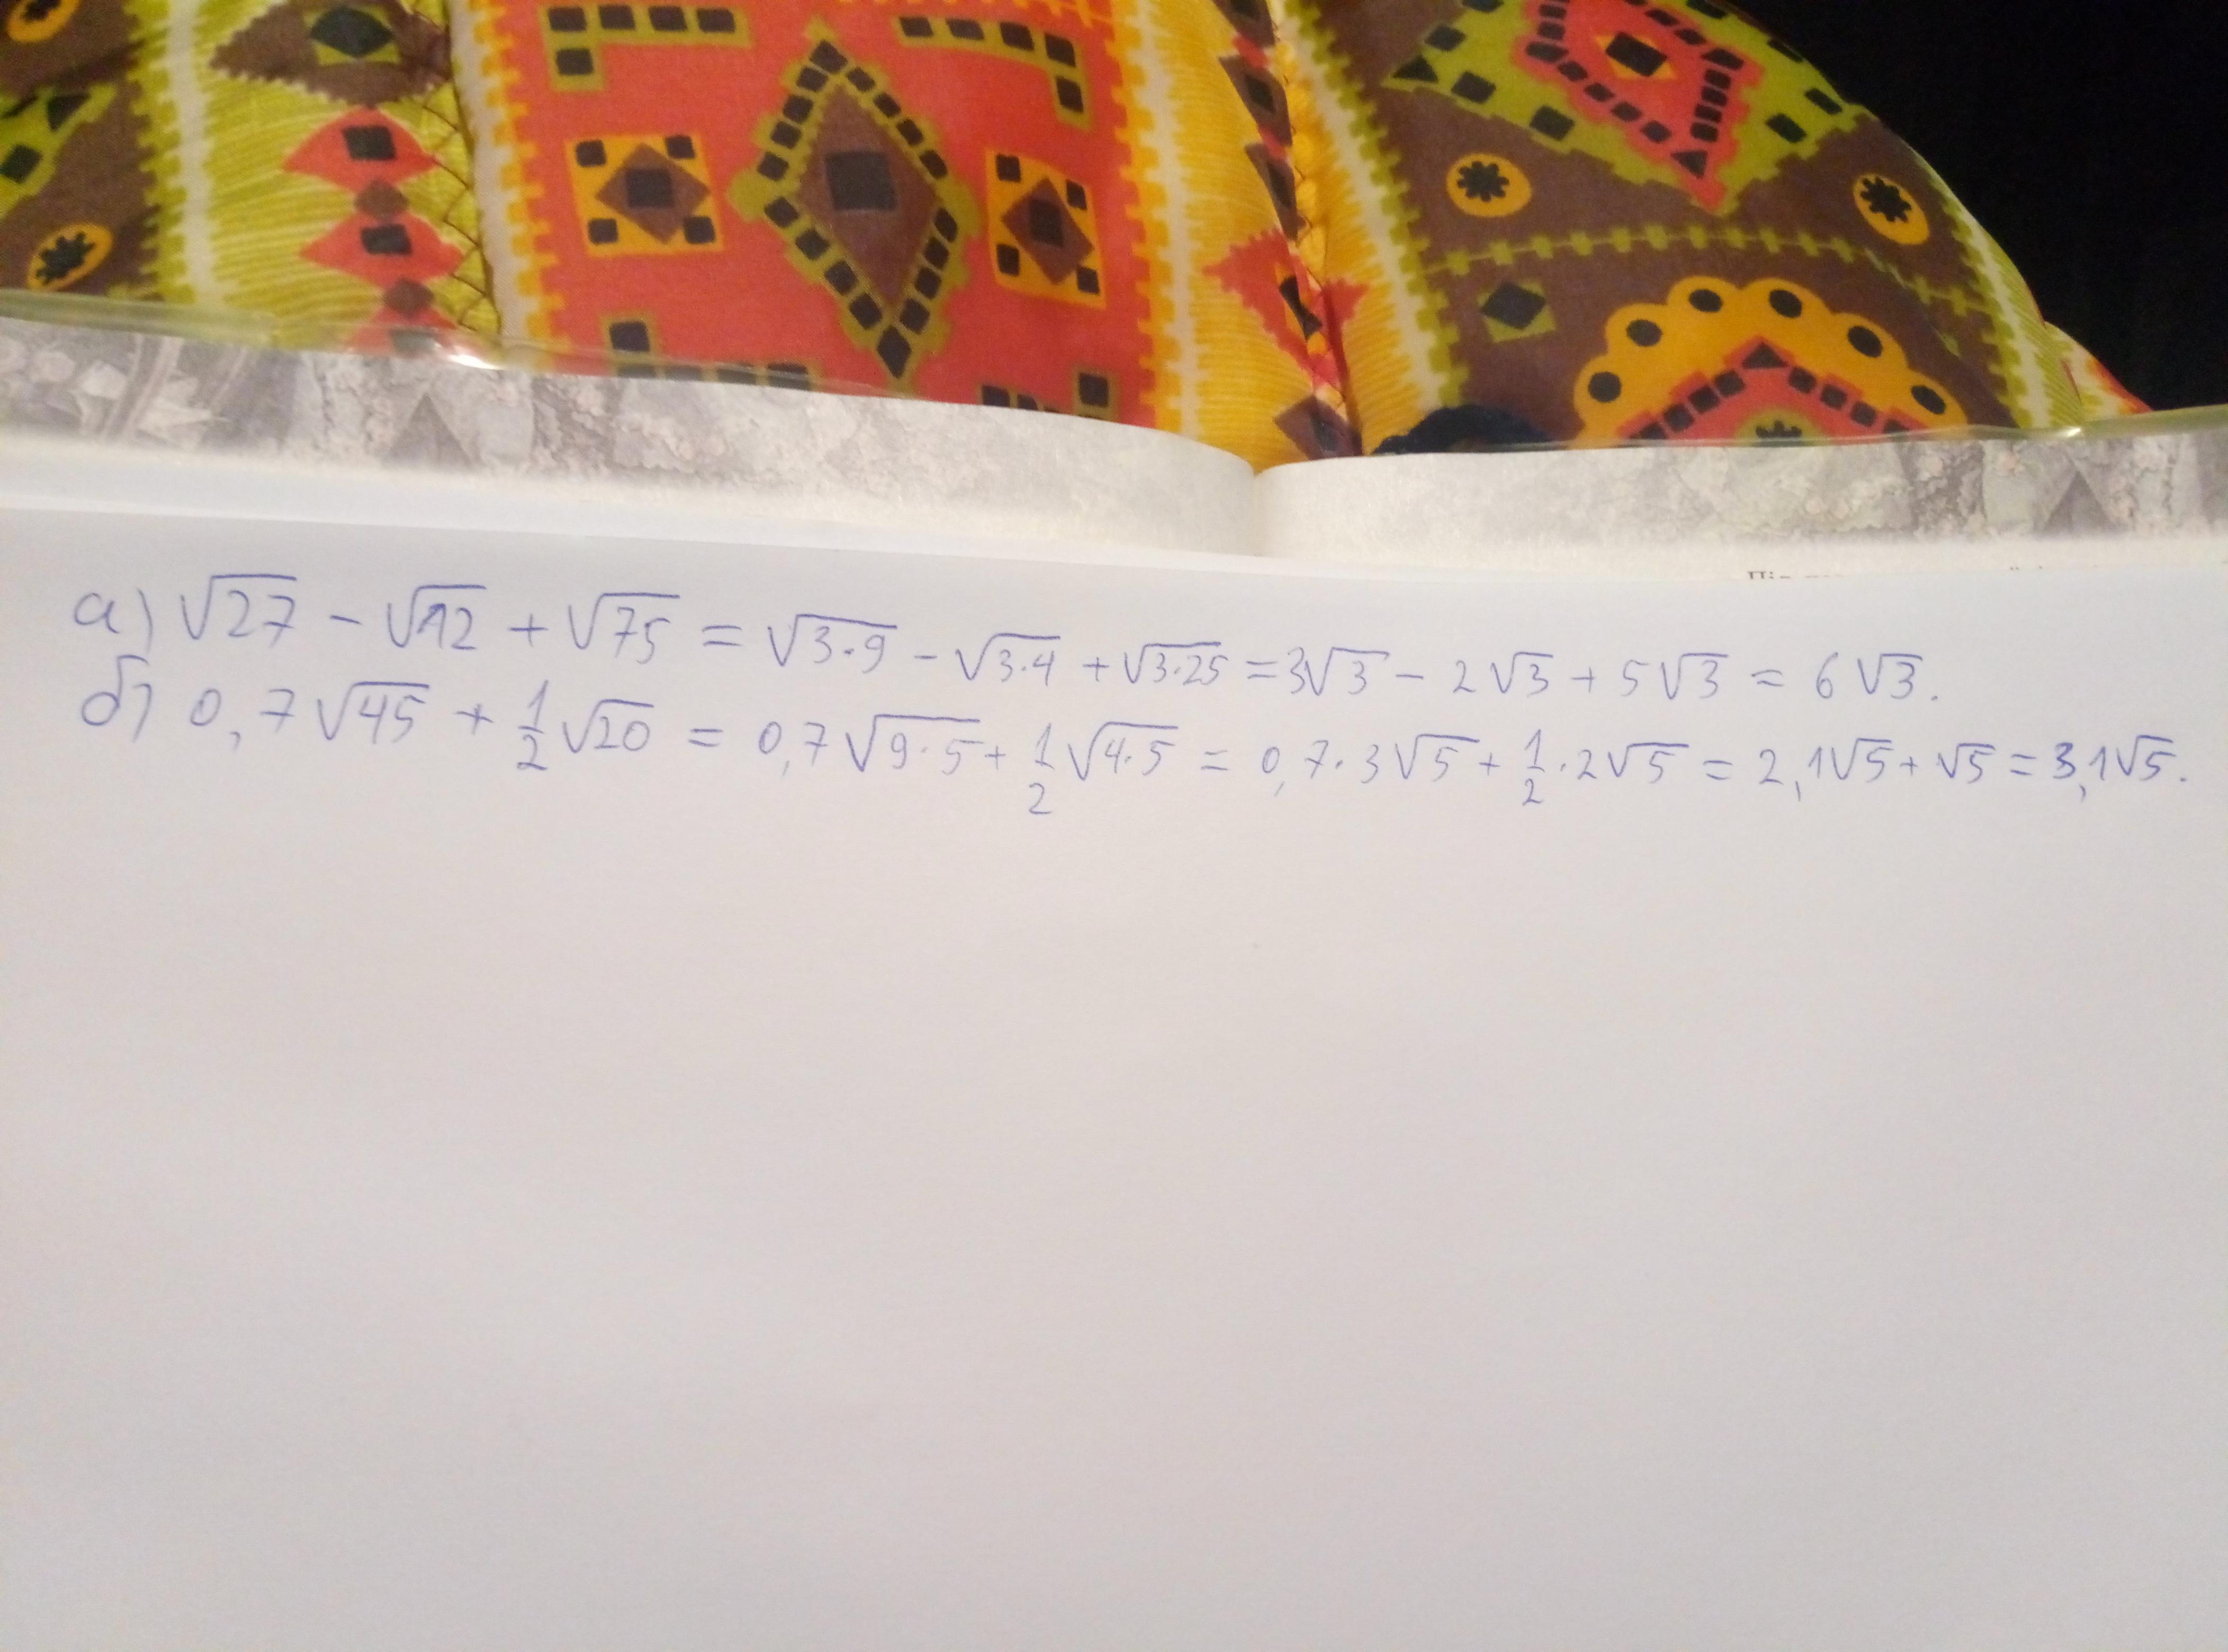 а) √27 - √12 + √75 = √3·9 - √3·4 + √3·25 = 3√3 - 2√3 + 5√3 = 6√3.
б) 0,7√45 + 1/2 √20 = 0,7√9·5 + 1/2 √4·5 = 0,7·3√5 + 1/2 · 2√5 = 2,1√5 + √5 = 3,1√5.